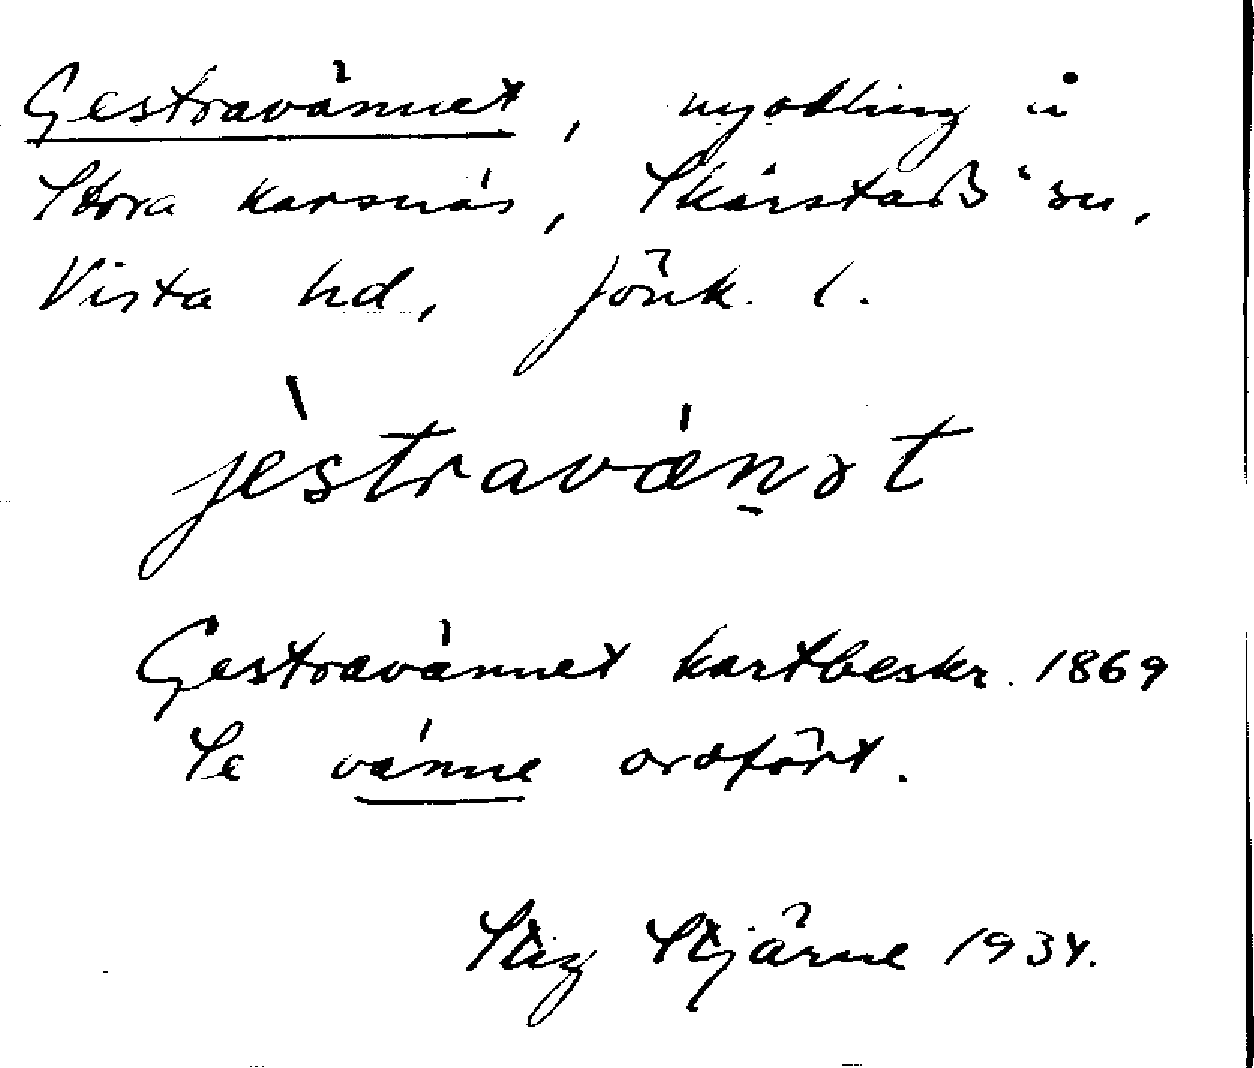 Gestravännet, nyodling å
Stora Karsnäs, Skärstads sn,
Vista hd, Jönk. l.
jèstravæ̀n̠ət
Gestravännet kartbeskr. 1869
Se vänne ordfört.
Stig Stjärne 1934.